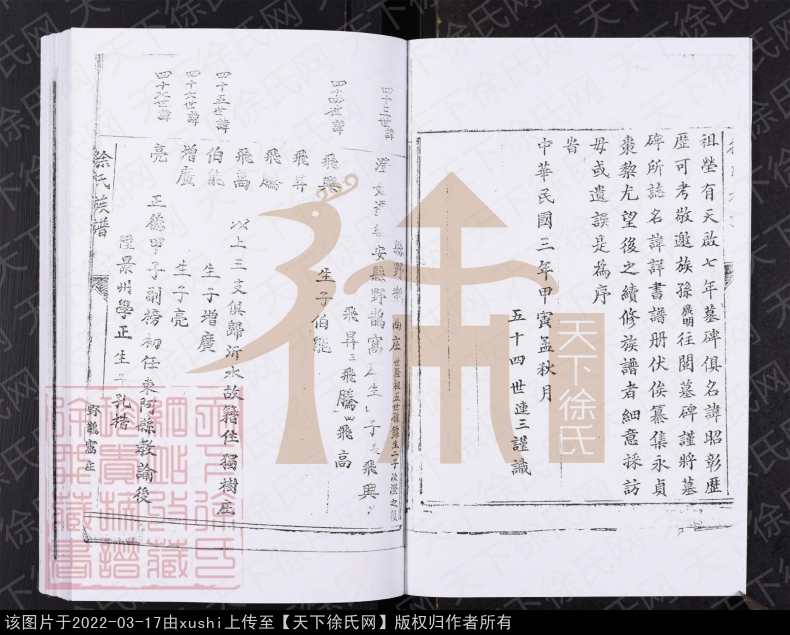 祖塋有天啟七年墓碑俱名諱昭彰歷
歷可考敬邀族孫廣明往閱墓碑謹將墓
碑所誌名諱詳書譜册伏俟纂集永貞
棗黎尤望後之續修族譜者細意採訪
毋或遺誤是為序
旹
中華民國三年甲寅孟秋月
五十四世連三謹識
縣野鵲 尚庄
四十三世諱
澄 安縣野鵲窩 生 子 飛興
飛昇 三飛騰 四飛高
四十四世諱
飛興 生子伯能
飛昇
飛騰
飛高 以上三支俱歸沂水故籍住獨樹庄
四十五世諱
伯能 生子增廣
四十六世諱
增廣 生子亮
亮 正德甲子副榜初任東阿縣教諭後
陞景州學正 生子孔楷
徐氏族譜
野鵲窩庄
天下徐氏
天下徐氏网
该图片于2022-03-17由xushi上传至【天下徐氏网】版权归作者所有